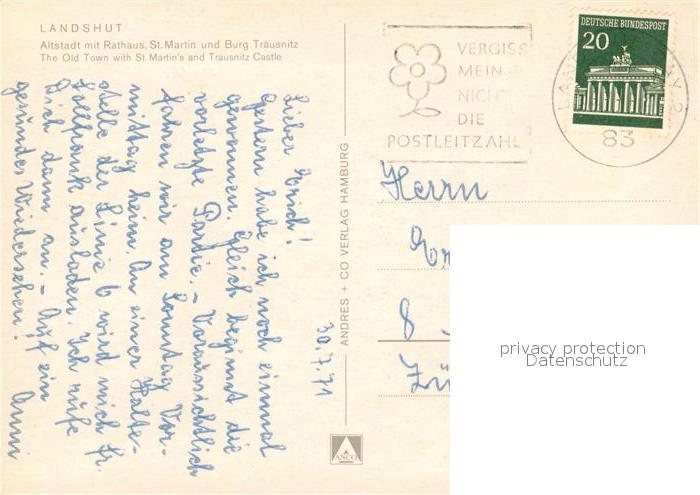 LANDSHUT
Altstadt mit Rathaus, St. Martin und Burg Trausnitz
The Old Town with St. Martin's and Trausnitz Castle
30.7.71
Lieber Erich!
Gestern habe ich noch einmal
gewonnen. Gleich beginnt die
vorletzte Partie. - Voraussichtlich
fahren wir am Sonntag Vor-
mittag heim. An einer Halte-
stelle der Linie 6 wird mich Fr.
ausladen. Ich rufe
Dich dann an. - Auf ein
gesundes Wiedersehen! Anni
ANDRES + CO VERLAG HAMBURG
ANCO
VERGISS
MEIN
NICHT
DIE
POSTLEITZAHL
DEUTSCHE BUNDESPOST
20
83
Herrn
8
Zü
privacy protection
Datenschutz